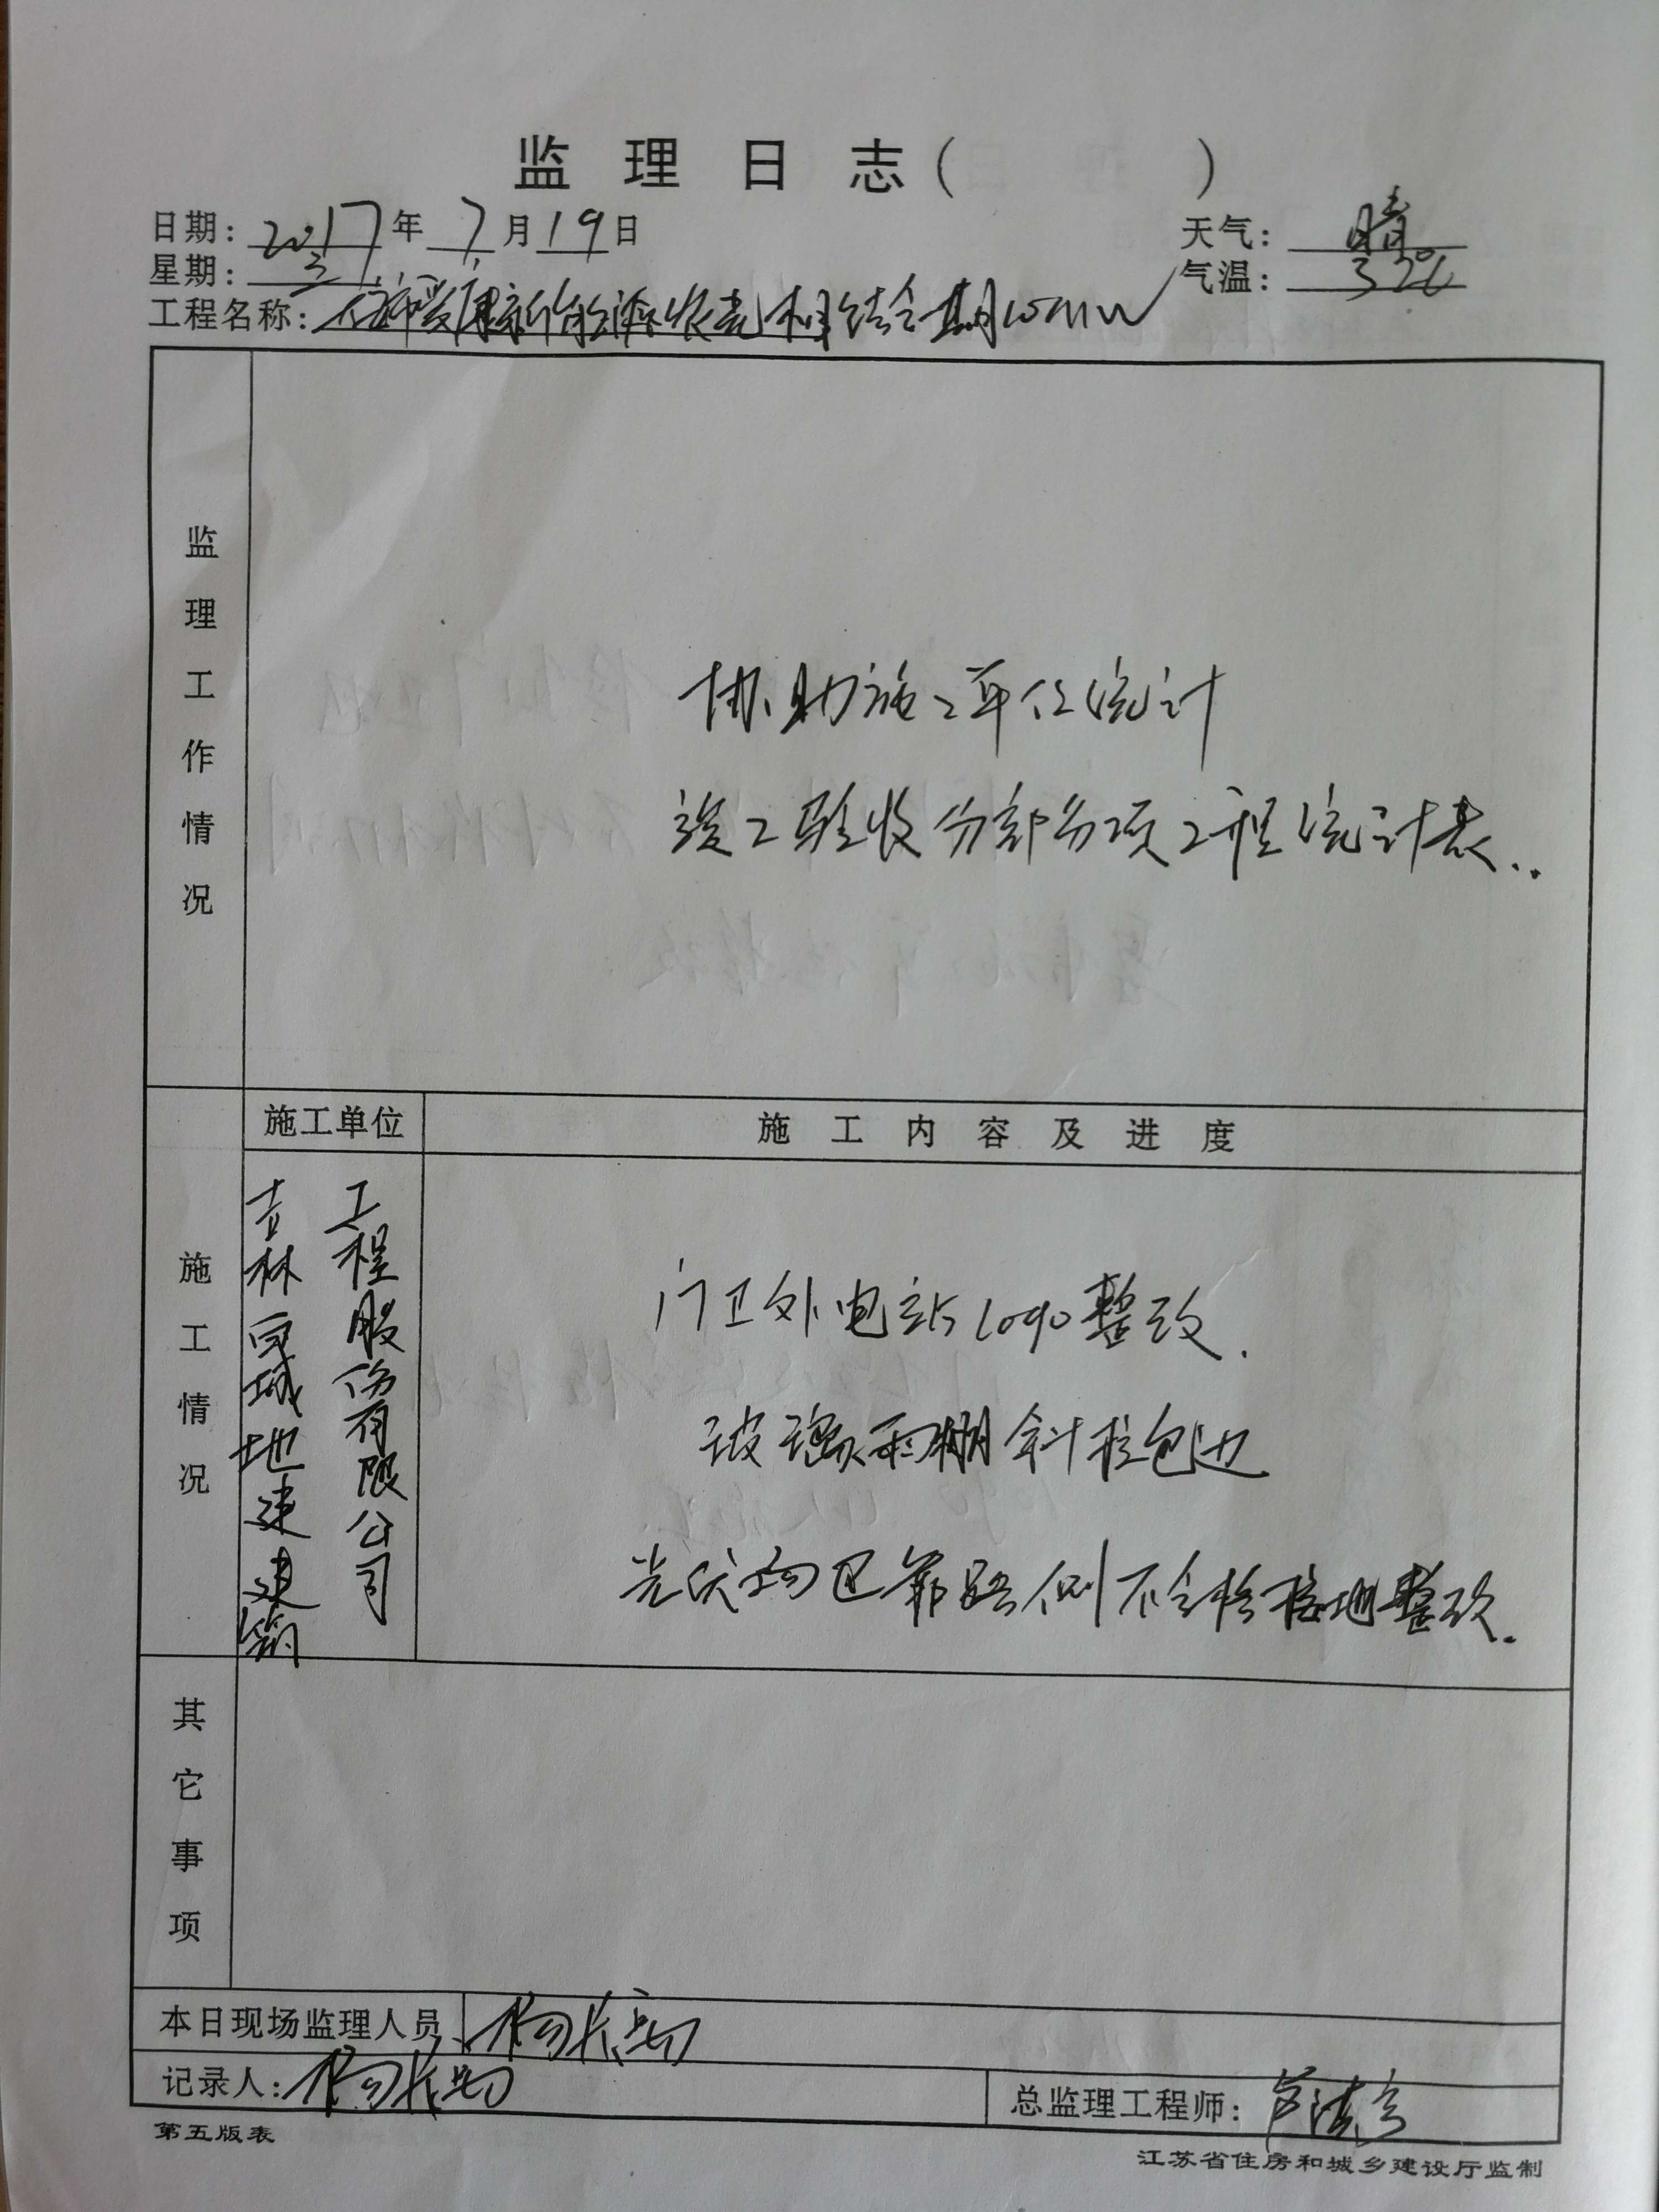 监理日志( )
日期: 2017年 7月19日
天气: 晴
星期: 三
气温: 32℃
工程名称: 新能源 光 相结合 期10MW
监理工作情况
协助施工单位统计
竣工验收分部分项工程统计表..
施工情况
施工单位
施工内容及进度
吉林 城地建建筑
工程股份有限公司
门卫外电站logo整改.
玻璃雨棚斜拉包边
光伏场区靠路侧不合格接地整改.
其它事项
本日现场监理人员 杨
记录人: 杨
总监理工程师: 卢
第五版表
江苏省住房和城乡建设厅监制